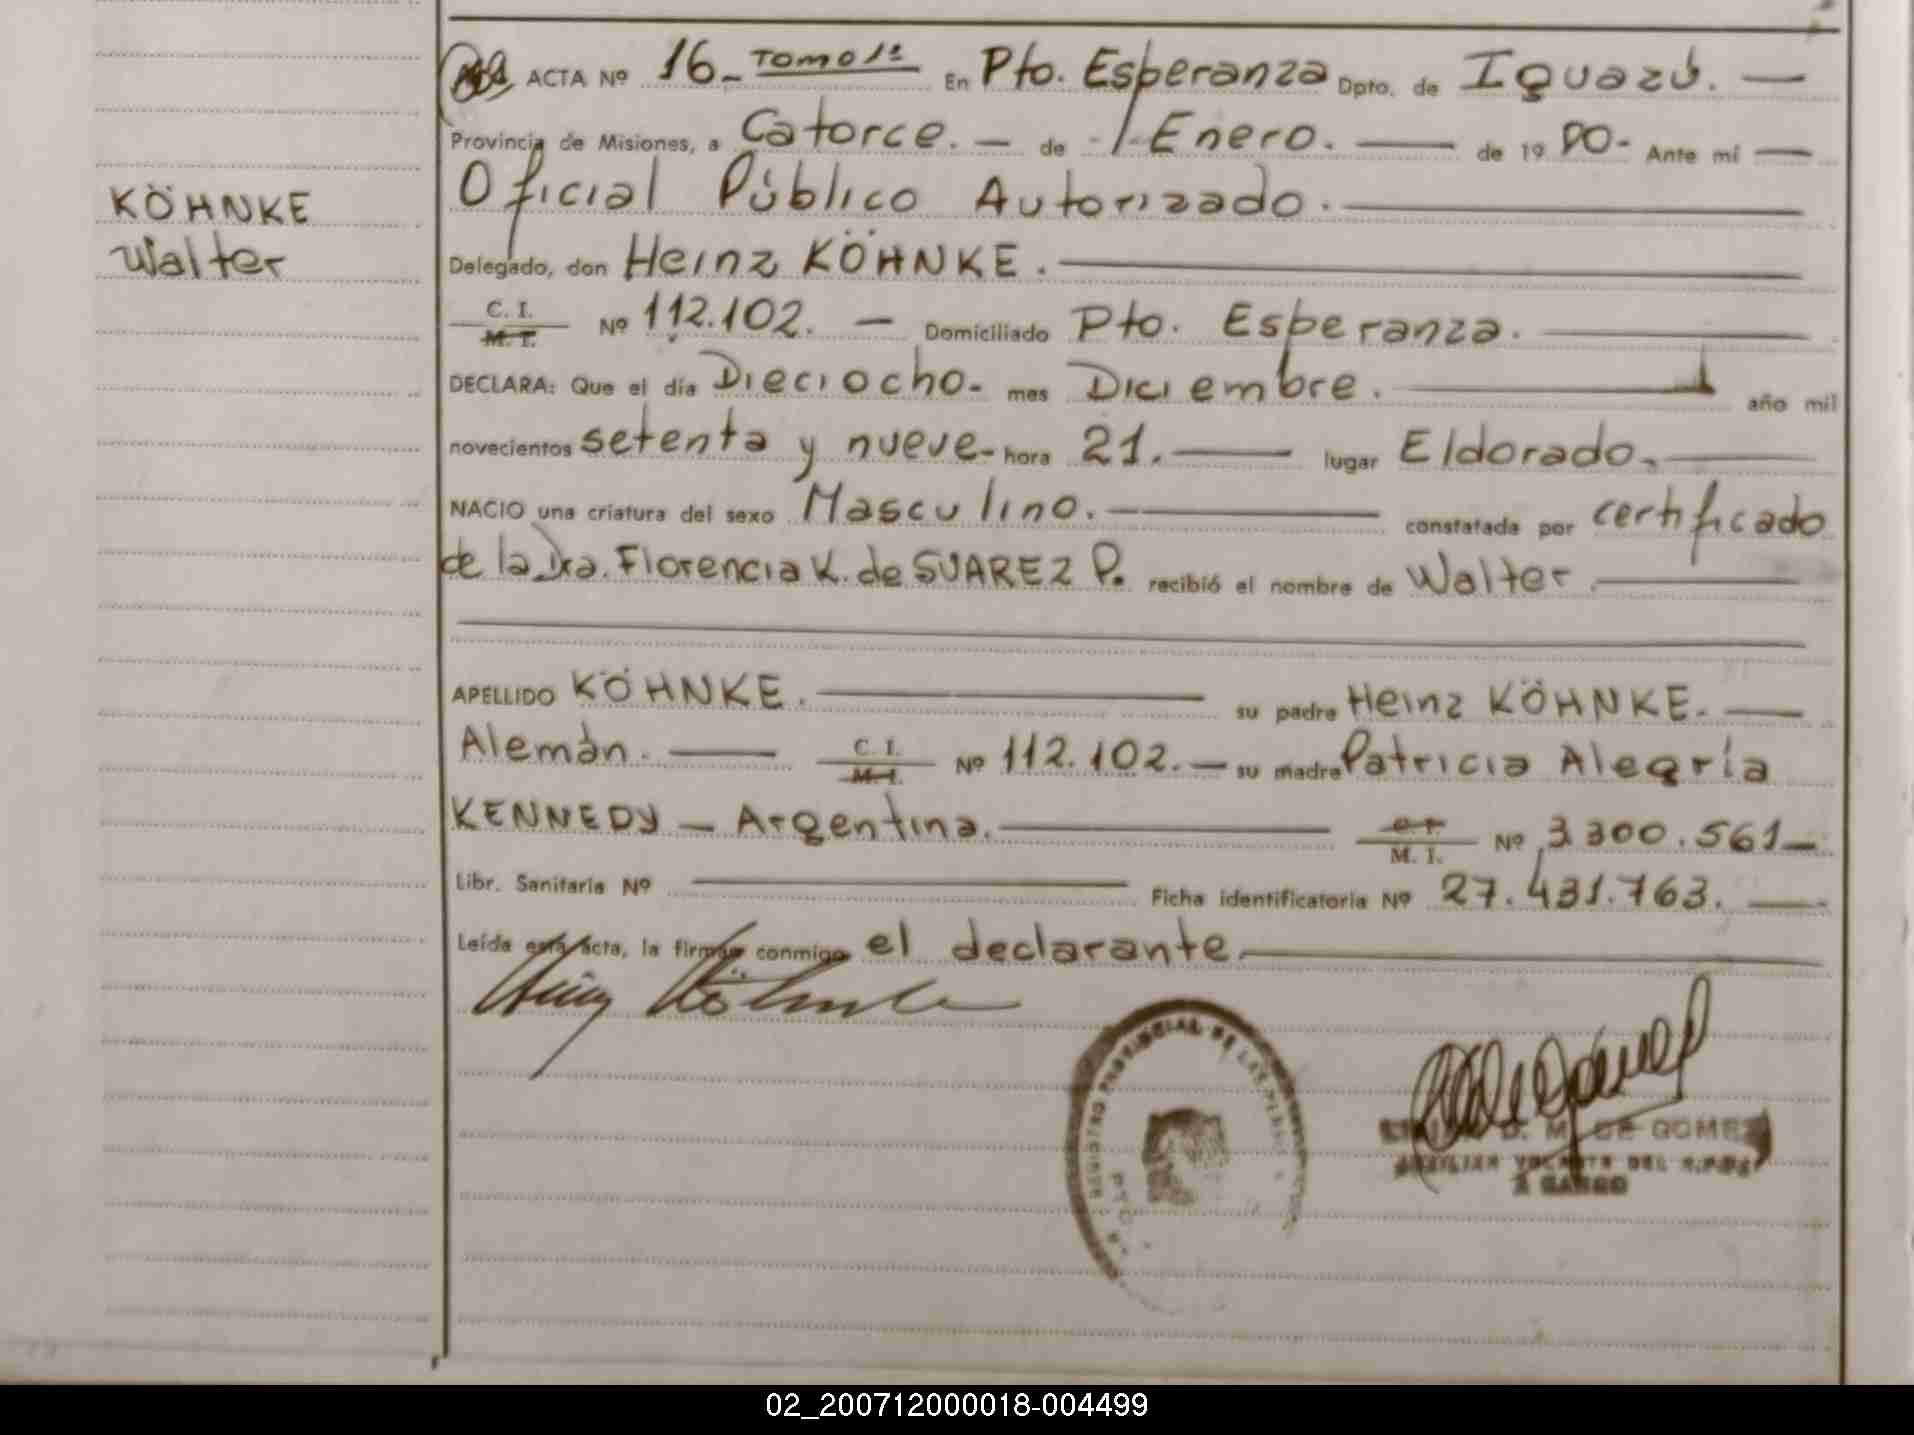 ACTA Nº 16.- TOMO 1º En Pto. Esperanza Dpto. de Iguazú. —
Provincia de Misiones, a Catorce. — de Enero. — de 19 80.- Ante mi —
KÖHNKE
Walter
Oficial Público Autorizado. —
Delegado, don Heinz KÖHNKE. —
C. I.
M. I. Nº 112.102. — Domiciliado Pto. Esperanza. —
DECLARA: Que el día Dieciocho- mes Diciembre. — año mil
novecientos setenta y nueve- hora 21. — lugar Eldorado. —
NACIO una criatura del sexo Masculino. — constatada por certificado
de la Dra. Florencia K. de SUAREZ P. recibió el nombre de Walter. —
APELLIDO KÖHNKE. — su padre Heinz KÖHNKE. —
Alemán. — C. I.
M. I. Nº 112.102. — su madre Patricia Alegría
KENNEDY — Argentina. — C. I.
M. I. Nº 3300.561 —
Libr. Sanitaria Nº — Ficha identificatoria Nº 27.431.763. —
Leída esta acta, la firman conmigo el declarante —
Heinz Köhnke
REGISTRO PROVINCIAL DE LAS
D. M. DE GOMEZ
AUXILIAR DEL
A CARGO
02_200712000018-004499